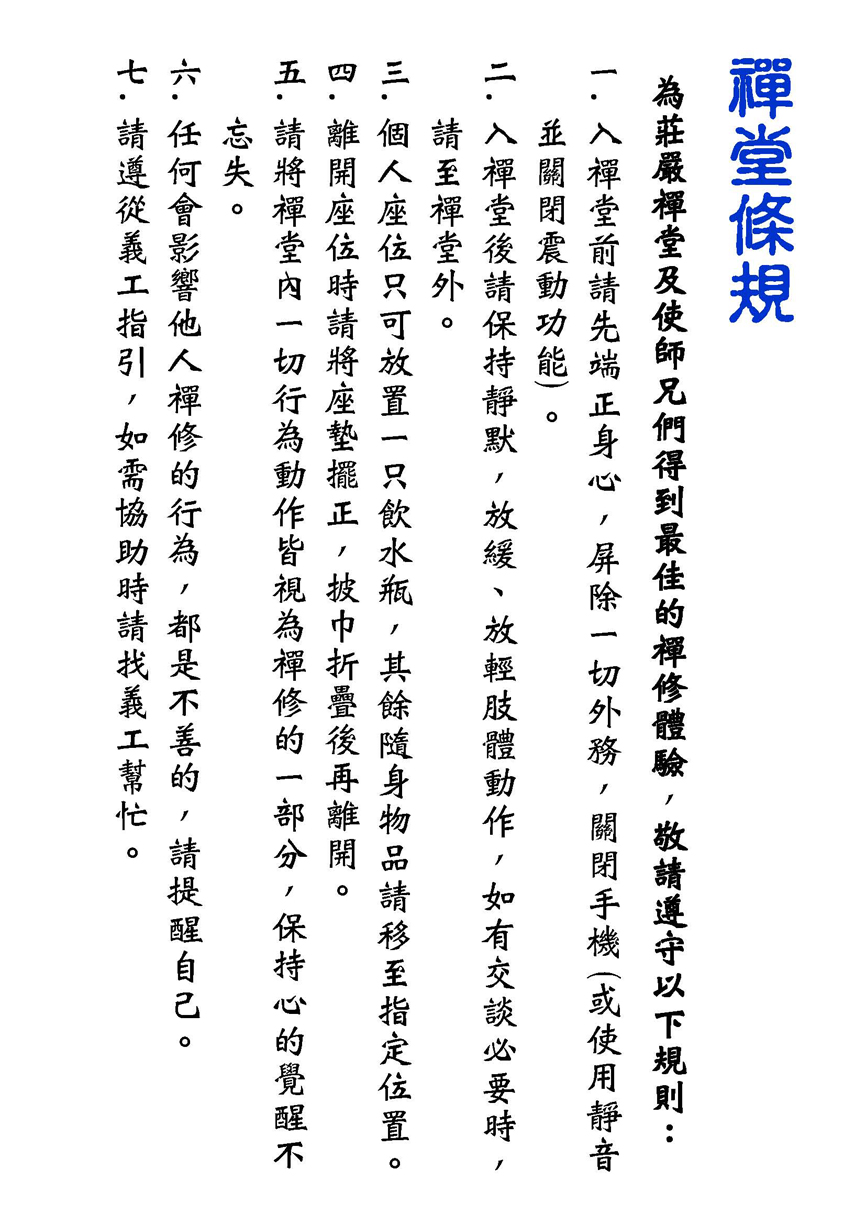 禪堂條規
為莊嚴禪堂及使師兄們得到最佳的禪修體驗，敬請遵守以下規則：
一.入禪堂前請先端正身心，屏除一切外務，關閉手機(或使用靜音
並關閉震動功能)。
二.入禪堂後請保持靜默，放緩、放輕肢體動作，如有交談必要時，
請至禪堂外。
三.個人座位只可放置一只飲水瓶，其餘隨身物品請移至指定位置。
四.離開座位時請將座墊擺正，披巾折疊後再離開。
五.請將禪堂內一切行為動作皆視為禪修的一部分，保持心的覺醒不
忘失。
六.任何會影響他人禪修的行為，都是不善的，請提醒自己。
七.請遵從義工指引，如需協助時請找義工幫忙。